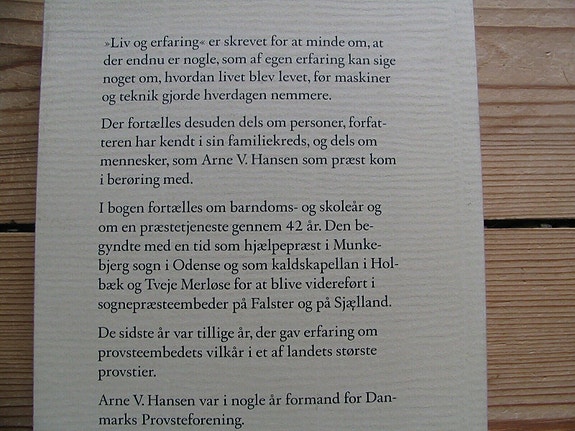 »Liv og erfaring« er skrevet for at minde om, at
der endnu er nogle, som af egen erfaring kan sige
noget om, hvordan livet blev levet, før maskiner
og teknik gjorde hverdagen nemmere.
Der fortælles desuden dels om personer, forfat-
teren har kendt i sin familiekreds, og dels om
mennesker, som Arne V. Hansen som præst kom
i berøring med.
I bogen fortælles om barndoms- og skoleår og
om en præstetjeneste gennem 42 år. Den be-
gyndte med en tid som hjælpepræst i Munke-
bjerg sogn i Odense og som kaldskapellan i Hol-
bæk og Tveje Merløse for at blive videreført i
sognepræsteembeder på Falster og på Sjælland.
De sidste år var tillige år, der gav erfaring om
provsteembedets vilkår i et af landets største
provstier.
Arne V. Hansen var i nogle år formand for Dan-
marks Provsteforening.